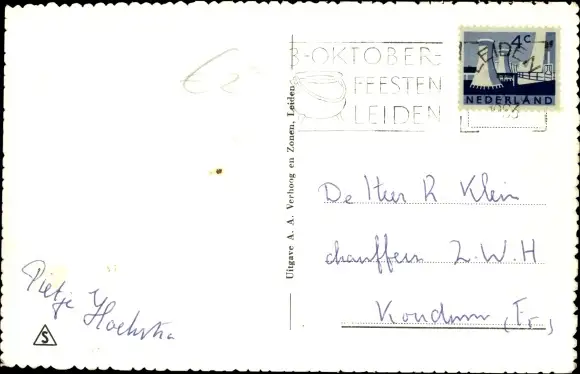 3-OKTOBER-
FEESTEN
LEIDEN
LEIDEN
4c
NEDERLAND
Uitgave A. A. Verhoog en Zonen, Leiden.
De Heer R Klein
chauffeur Z.W.H
Koudum (Fr)
Pietje Hoekstra
S